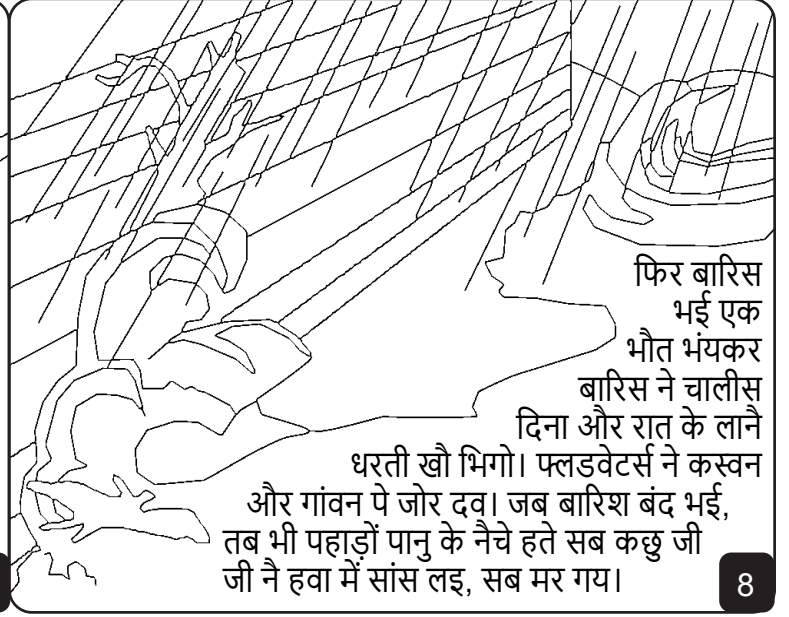 फिर बारिस
भई एक
भौत भंयकर
बारिस ने चालीस
दिना और रात के लानै
धरती खौ भिगो। फ्लडवेटर्स ने कस्वन
और गांवन पे जोर दव। जब बारिश बंद भई,
तब भी पहाड़ों पानु के नैचे हते सब कछु जी
जी नै हवा में सांस लइ, सब मर गय।
8